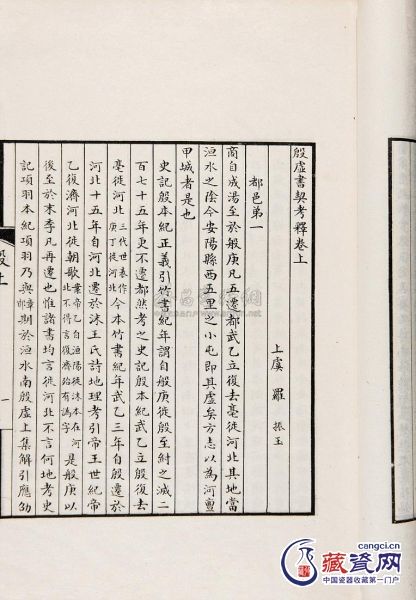 殷虛書契考釋卷上
上虞 羅 振玉
都邑弟一
商自成湯至於般庚凡五遷都武乙立復去亳徙河北其地當
洹水之陰今安陽縣西五里之小屯即其虛矣方志以為河亶
甲城者是也
史記殷本紀正義引竹書紀年謂自般庚徙殷至紂之滅二
百七十五年更不遷都然考之史記殷本紀武乙立殷復去
亳徙河北三代世表作庚丁徙河北今本竹書紀年武乙三年自殷遷於
河北十五年自河北遷於沬王氏詩地理考引帝王世紀帝
乙復濟河北徙朝歌
是般庚以
後至於末季凡再遷也惟諸書均言徙河北不言何地考史
記項羽本紀項羽乃與章邯期於洹水南殷虛上集解引應劭
殷上
一
cangci.cn
藏瓷网
中国瓷器收藏第一门户